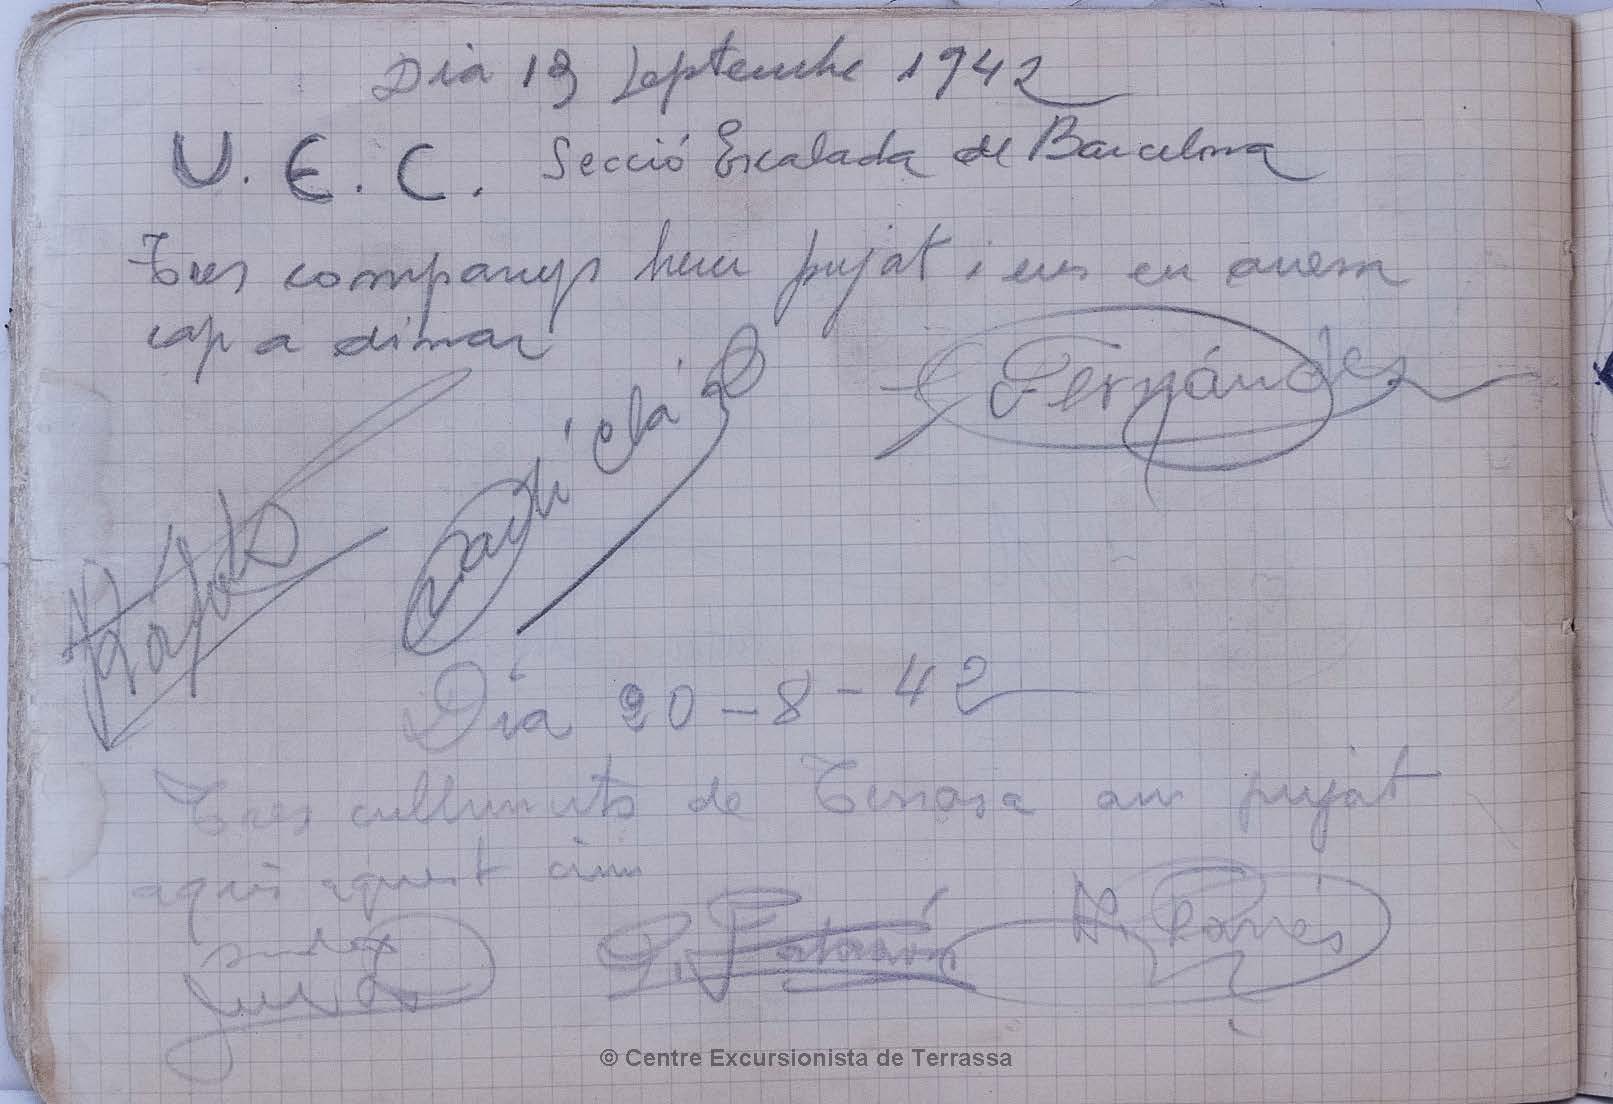 Dia 13 Septembre 1942
U. E. C. Secció Escalada de Barcelona
Tres companys hem pujat i ens en anem
cap a dinar
Fernández
Martí Clá
Dia 20-8-42
Tres cullunuts de Terrasa am pujat
aquí aquest cim
P.
A. Parrés
© Centre Excursionista de Terrassa